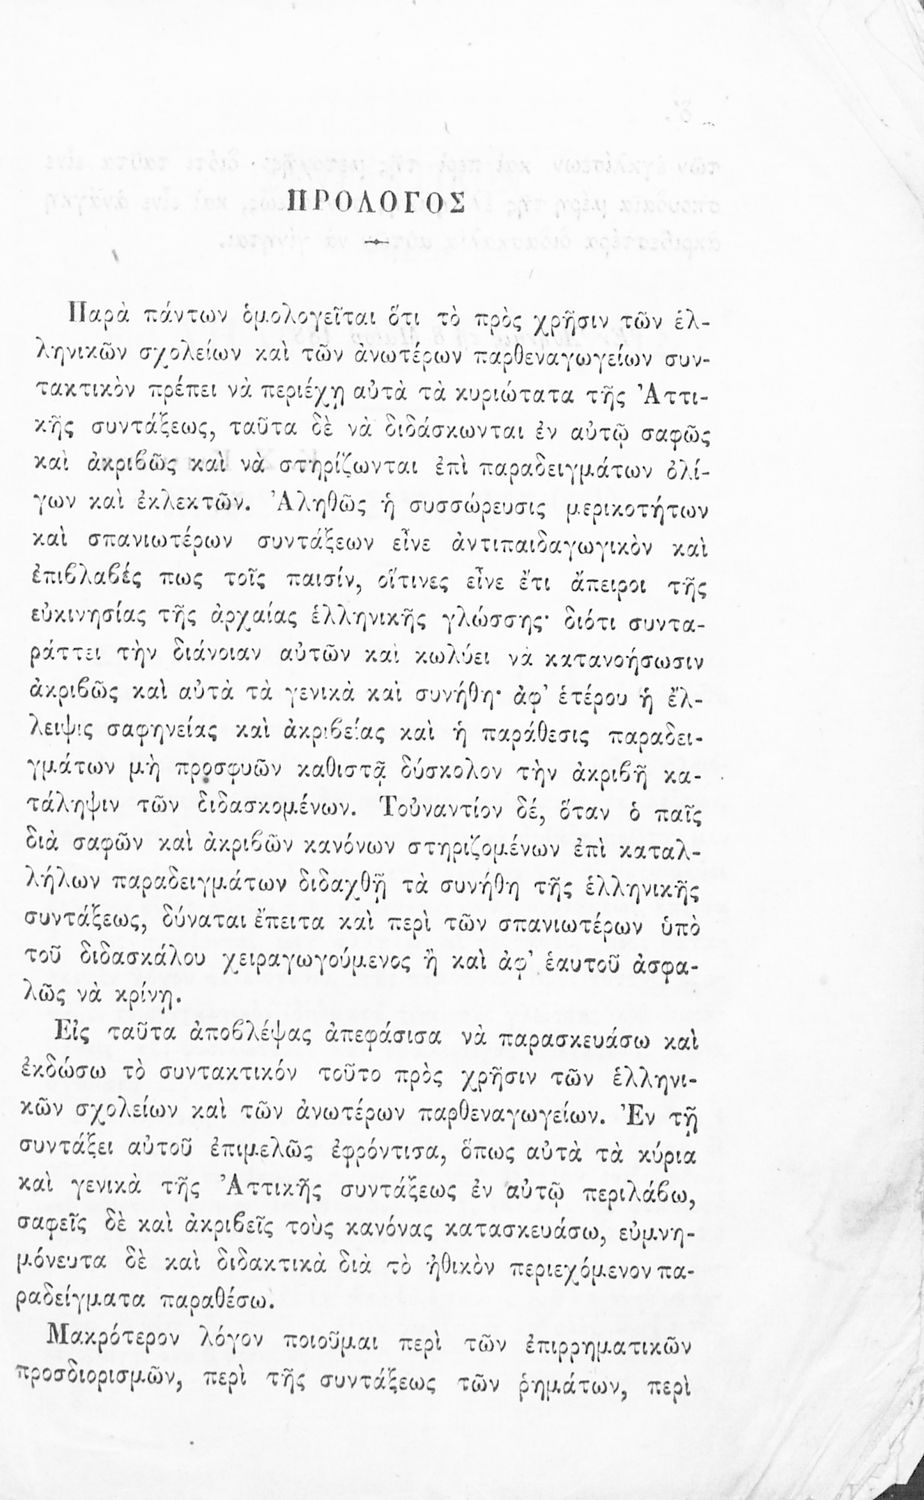 ΠΡΟΛΟΓΟΣ
Παρὰ πάντων ὁμολογεῖται ὅτι τὸ πρὸς χρῆσιν τῶν ἑλ-
ληνικῶν σχολείων καὶ τῶν ἀνωτέρων παρθεναγωγείων συν-
τακτικὸν πρέπει νὰ περιέχῃ αὐτὰ τὰ κυριώτατα τῆς Ἀττι-
κῆς συντάξεως, ταῦτα δὲ νὰ διδάσκωνται ἐν αὐτῷ σαφῶς
καὶ ἀκριβῶς καὶ νὰ στηρίζωνται ἐπὶ παραδειγμάτων ὀλί-
γων καὶ ἐκλεκτῶν. Ἀληθῶς ἡ συσσώρευσις μερικοτήτων
καὶ σπανιωτέρων συντάξεων εἶνε ἀντιπαιδαγωγικὸν καὶ
ἐπιβλαβές πως τοῖς παισίν, οἵτινες εἶνε ἔτι ἄπειροι τῆς
εὐκινησίας τῆς ἀρχαίας ἑλληνικῆς γλώσσης· διότι συντα-
ράττει τὴν διάνοιαν αὐτῶν καὶ κωλύει νὰ κατανοήσωσιν
ἀκριβῶς καὶ αὐτὰ τὰ γενικὰ καὶ συνήθη· ἀφ' ἑτέρου ἡ ἔλ-
λειψις σαφηνείας καὶ ἀκριβείας καὶ ἡ παράθεσις παραδει-
γμάτων μὴ προσφυῶν καθιστᾷ δύσκολον τὴν ἀκριβῆ κα-
τάληψιν τῶν διδασκομένων. Τοὐναντίον δέ, ὅταν ὁ παῖς
διὰ σαφῶν καὶ ἀκριβῶν κανόνων στηριζομένων ἐπὶ καταλ-
λήλων παραδειγμάτων διδαχθῇ τὰ συνήθη τῆς ἑλληνικῆς
συντάξεως, δύναται ἔπειτα καὶ περὶ τῶν σπανιωτέρων ὑπὸ
τοῦ διδασκάλου χειραγωγούμενος ἢ καὶ ἀφ' ἑαυτοῦ ἀσφα-
λῶς νὰ κρίνῃ.
Εἰς ταῦτα ἀποβλέψας ἀπεφάσισα νὰ παρασκευάσω καὶ
ἐκδώσω τὸ συντακτικόν τοῦτο πρὸς χρῆσιν τῶν ἑλληνι-
κῶν σχολείων καὶ τῶν ἀνωτέρων παρθεναγωγείων. Ἐν τῇ
συντάξει αὐτοῦ ἐπιμελῶς ἐφρόντισα, ὅπως αὐτὰ τὰ κύρια
καὶ γενικὰ τῆς Ἀττικῆς συντάξεως ἐν αὐτῷ περιλάβω,
σαφεῖς δὲ καὶ ἀκριβεῖς τοὺς κανόνας κατασκευάσω, εὐμνη-
μόνευτα δὲ καὶ διδακτικὰ διὰ τὸ ἠθικὸν περιεχόμενον πα-
ραδείγματα παραθέσω.
Μακρότερον λόγον ποιοῦμαι περὶ τῶν ἐπιρρηματικῶν
προσδιορισμῶν, περὶ τῆς συντάξεως τῶν ῥημάτων, περὶ